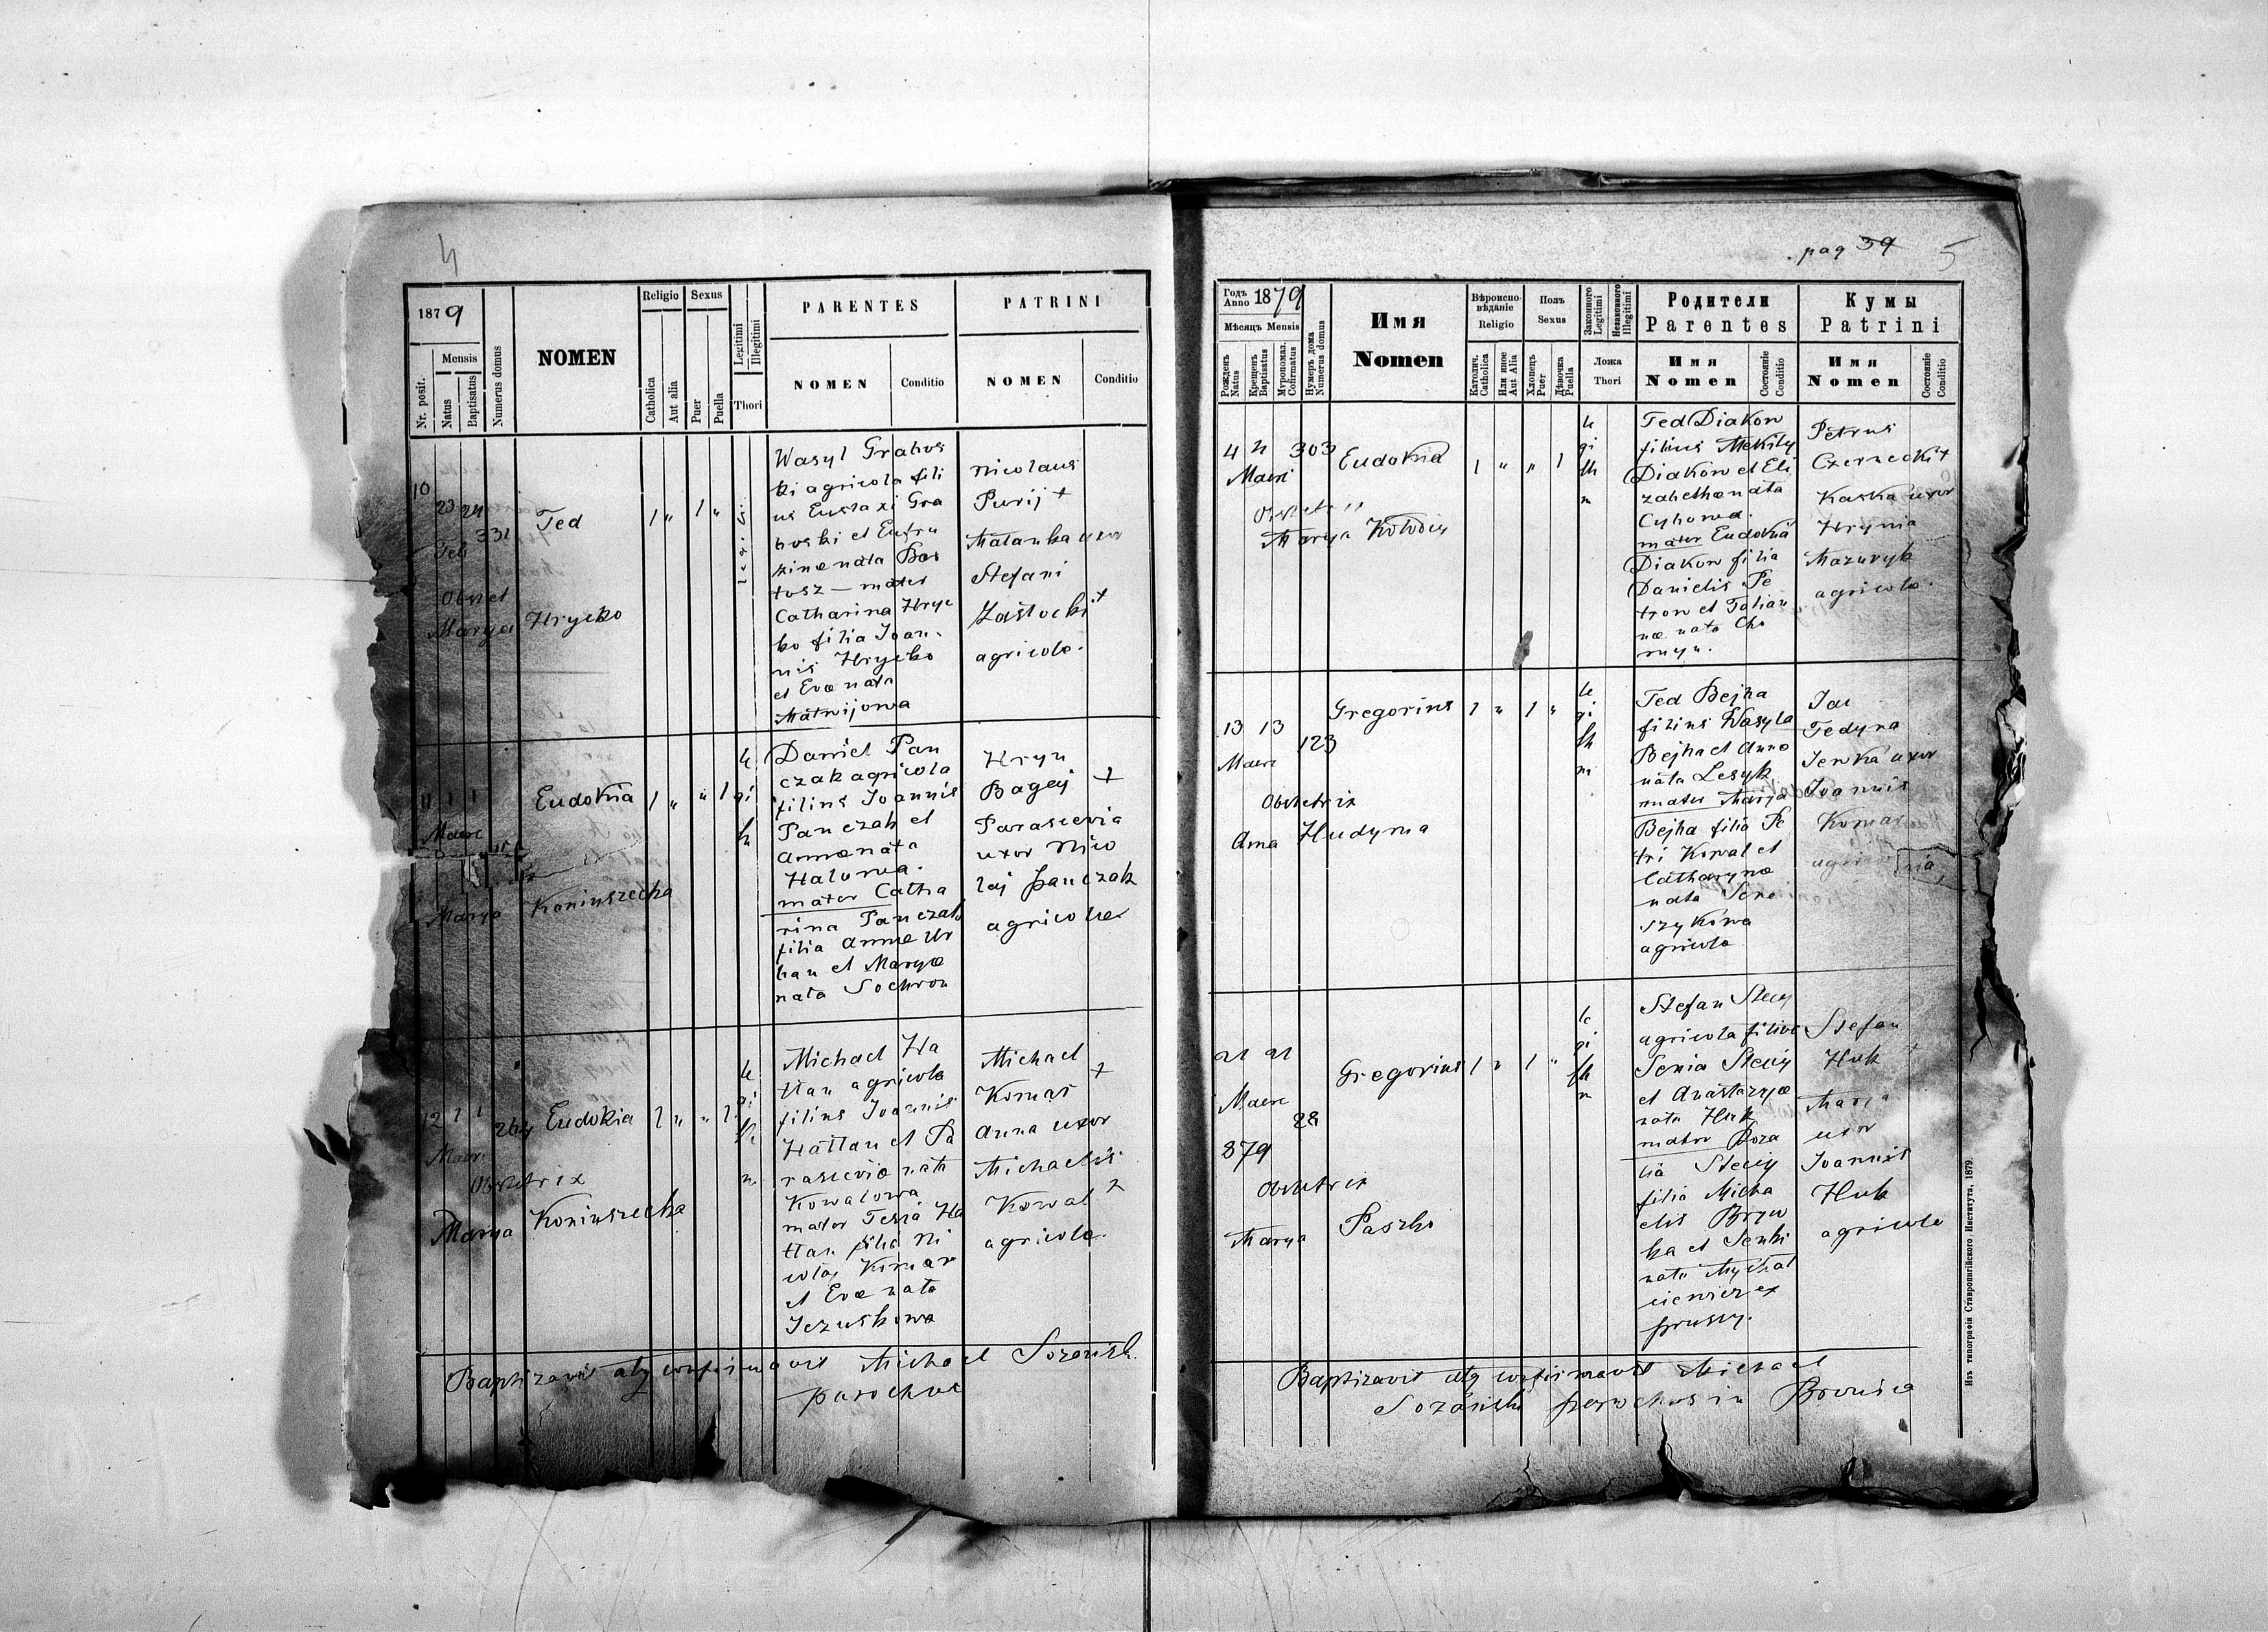 4
1879
Nr. posit.
Mensis
Natus
Baptisatus
Numerus domus
NOMEN
Religio
Catholica
Aut alia
Sexus
Puer
Puella
Legitimi
Illegitimi
Thori
PARENTES
NOMEN
Conditio
PATRINI
NOMEN
Conditio
10
23 24
Feb
331
Obstet
Marya Hrycko
Ted
1 " 1 "
legi
Wasyl Grabos
ki agricola fili
us Eustaxi Gra
boski et Eufru
zinæ nata Bar
tosz – mater
Catharina Hryc
ko filia Joan-
nis Hrycko
et Evæ nata
Matwijowa
Nicolaus
Purij +
Malanka uxor
Stefani
Zastocki +
agricolæ.
11 1 1
Marc
Marya Koniuszecka
Eudokia
1 " " 1
le
gi
th
Daniel Pan
czak agricola
filius Joannis
Panczak et
Annæ nata
Halowa.
mater Catha
rina Panczak
filia Annæ Ur
ban et Maryæ
nata Sochron
Hryn
Bagaj +
Parascevia
uxor Nico
laj Panczak
agricolæ
12 1 1
Marc
Obstetrix
Marya Koniuszecka
Eudokia
1 " " 1
le
gi
th
m
Michael Ha
tlan agricola
filius Joannis
Hattan et Pa
rasceviæ nata
Kowalowa
mater Tesia Ha
ttan filia Ni
colaj Komar
et Evæ nata
Jczuskowa
Michael
Komar +
Anna uxor
Michaelis
Kowal +
agricolæ.
Baptizavit atq confirmavit Michael Sozański
parochus
pag 39 5
Годъ
Anno 1879
Мѣсяцъ Mensis
Рожденъ
Natus
Крещенъ
Baptisatus
Муропомаз.
Cofirmatus
Нумеръ дома
Numerus domus
Имя
Nomen
Вѣроиспо-
вѣданіе
Religio
Католич.
Catholica
Или иное
Aut Alia
Полъ
Sexus
Хлопецъ
Puer
Дѣвочка
Puella
Законного
Legitimi
Незаконного
Illegitimi
Ложа
Thori
Родители
Parentes
Имя
Nomen
Состояніе
Conditio
Кумы
Patrini
Имя
Nomen
Состояніе
Conditio
4 4 303
Marci
Marya Kołodiy
Eudokia
1 " " 1
le
gi
th
m
Ted Diakow
filius Mekity
Diakow et Eli
zabethæ nata
Cyhowa.
mater Eudokia
Diakow filia
Danielis Pe
trow et Tatian
næ nata Cho
myn.
Petrus
Czernecki +
Kaska uxor
Hrynia
Mazuryk
agricolæ.
13 13 123
Marc
Obstetrix
Anna Hudyma
Gregorius
1 " 1 "
le
gi
th
m
Ted Bejha
filius Wasyla
Bejha et Anna
nata Lesyk
mater Marya
Bejha filia Pe
tri Kowal et
Catharynæ
nata Sene
szykowa
agricolæ
Jac
Fedyna
Jenka uxor
Joannis
Komar
21 21
Marc
28
879
Obstetrix
Marya Paszko
Gregorius
1 " 1 "
le
gi
th
m
Stefan Steciy
agricola filius
Senia Steciy
et Anastazyæ
nata Huk
mater Roza
lia Steciy
filia Micha
elis Bryw
ka et Senki
nata Mychal
ciewicz ex
prussy.
Stefan
Huk +
Marya
uxor
Joannis
Huk
agricolæ
Baptizavit atq confirmavit Michael
Sozański parochus in Bronica
Изъ типографіи Ставропигійского Института, 1879.